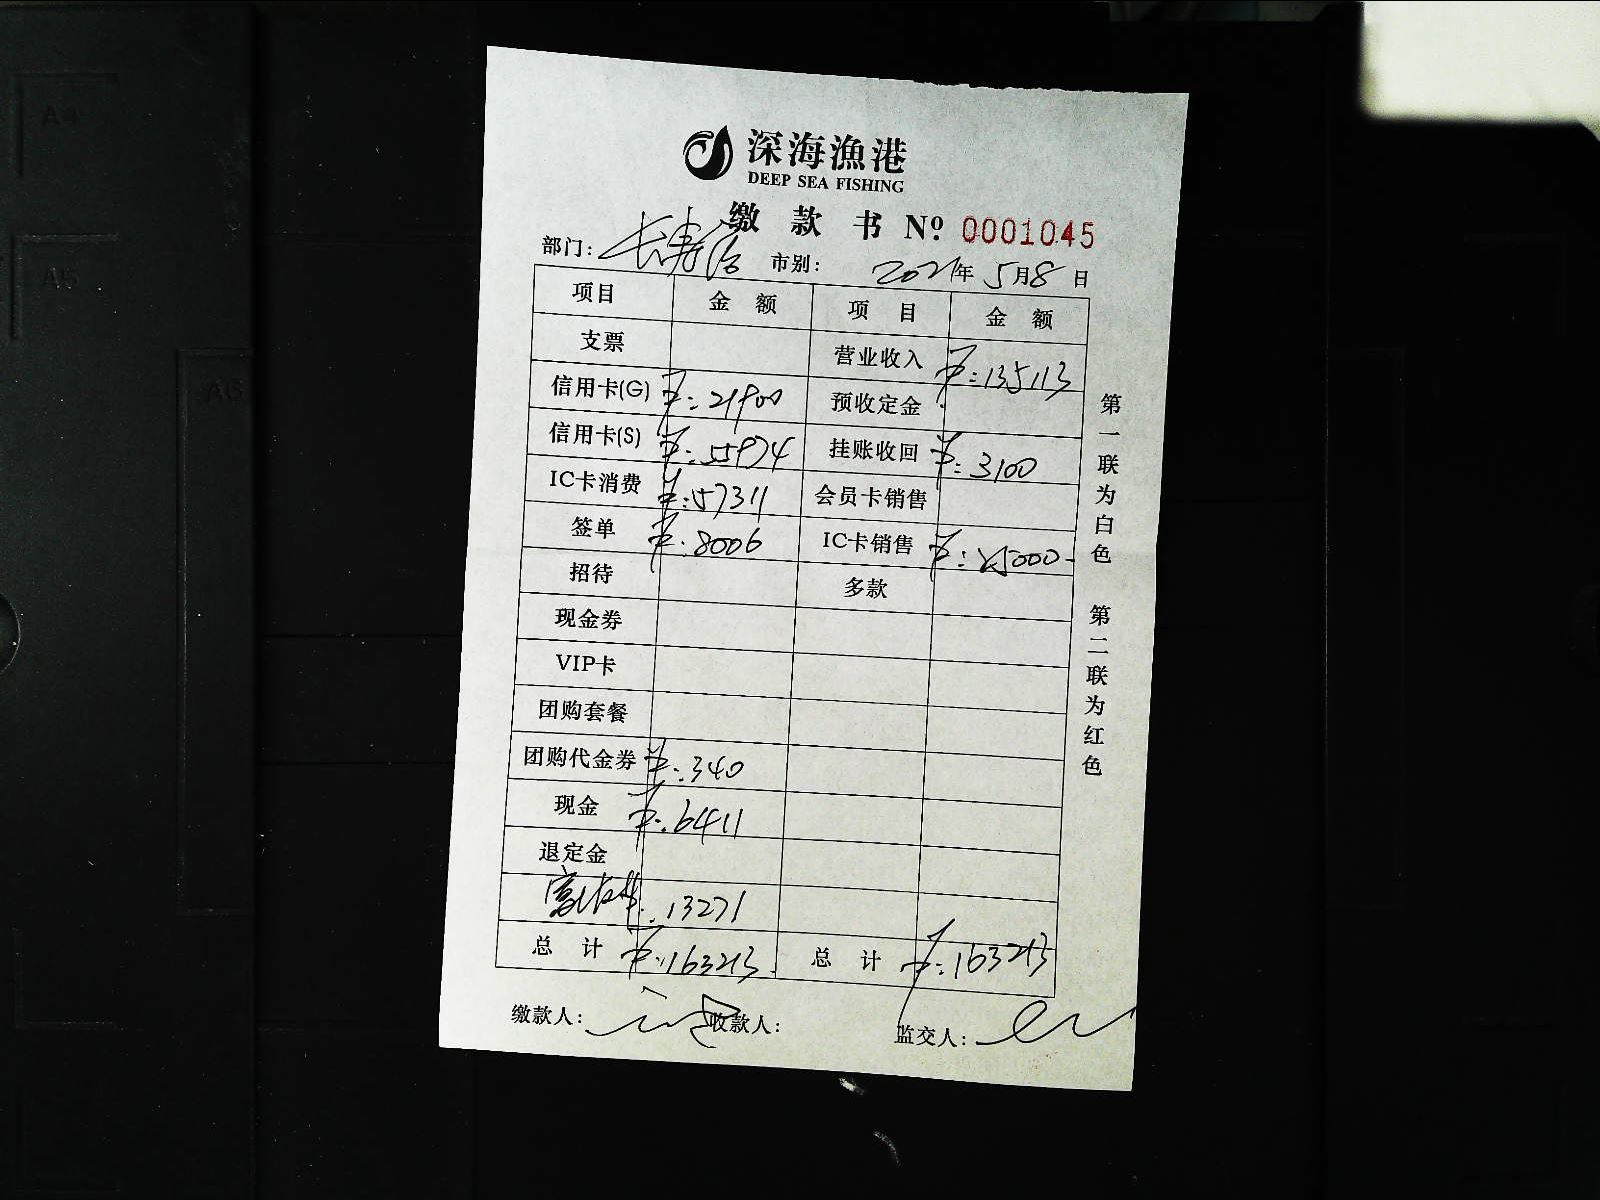 深海漁港
DEEP SEA FISHING
缴 款 书 Nº 0001045
部门: 长寿路 市别: 2021年 5月8日
项目 金 额 项 目 金 额
支票 营业收入 ¥:135113
信用卡(G) ¥:21900 预收定金
信用卡(S) ¥:55974 挂账收回 ¥:3100
IC卡消费 ¥:57311 会员卡销售
签单 ¥:8006 IC卡销售 ¥:25000-
招待 多款
现金券
VIP卡
团购套餐
团购代金券 ¥:340
现金 ¥:6411
退定金
13271
总 计 ¥:163213 总 计 ¥:163213
缴款人: 收款人: 监交人:
第一联为白色 第二联为红色
A4
A5
A6